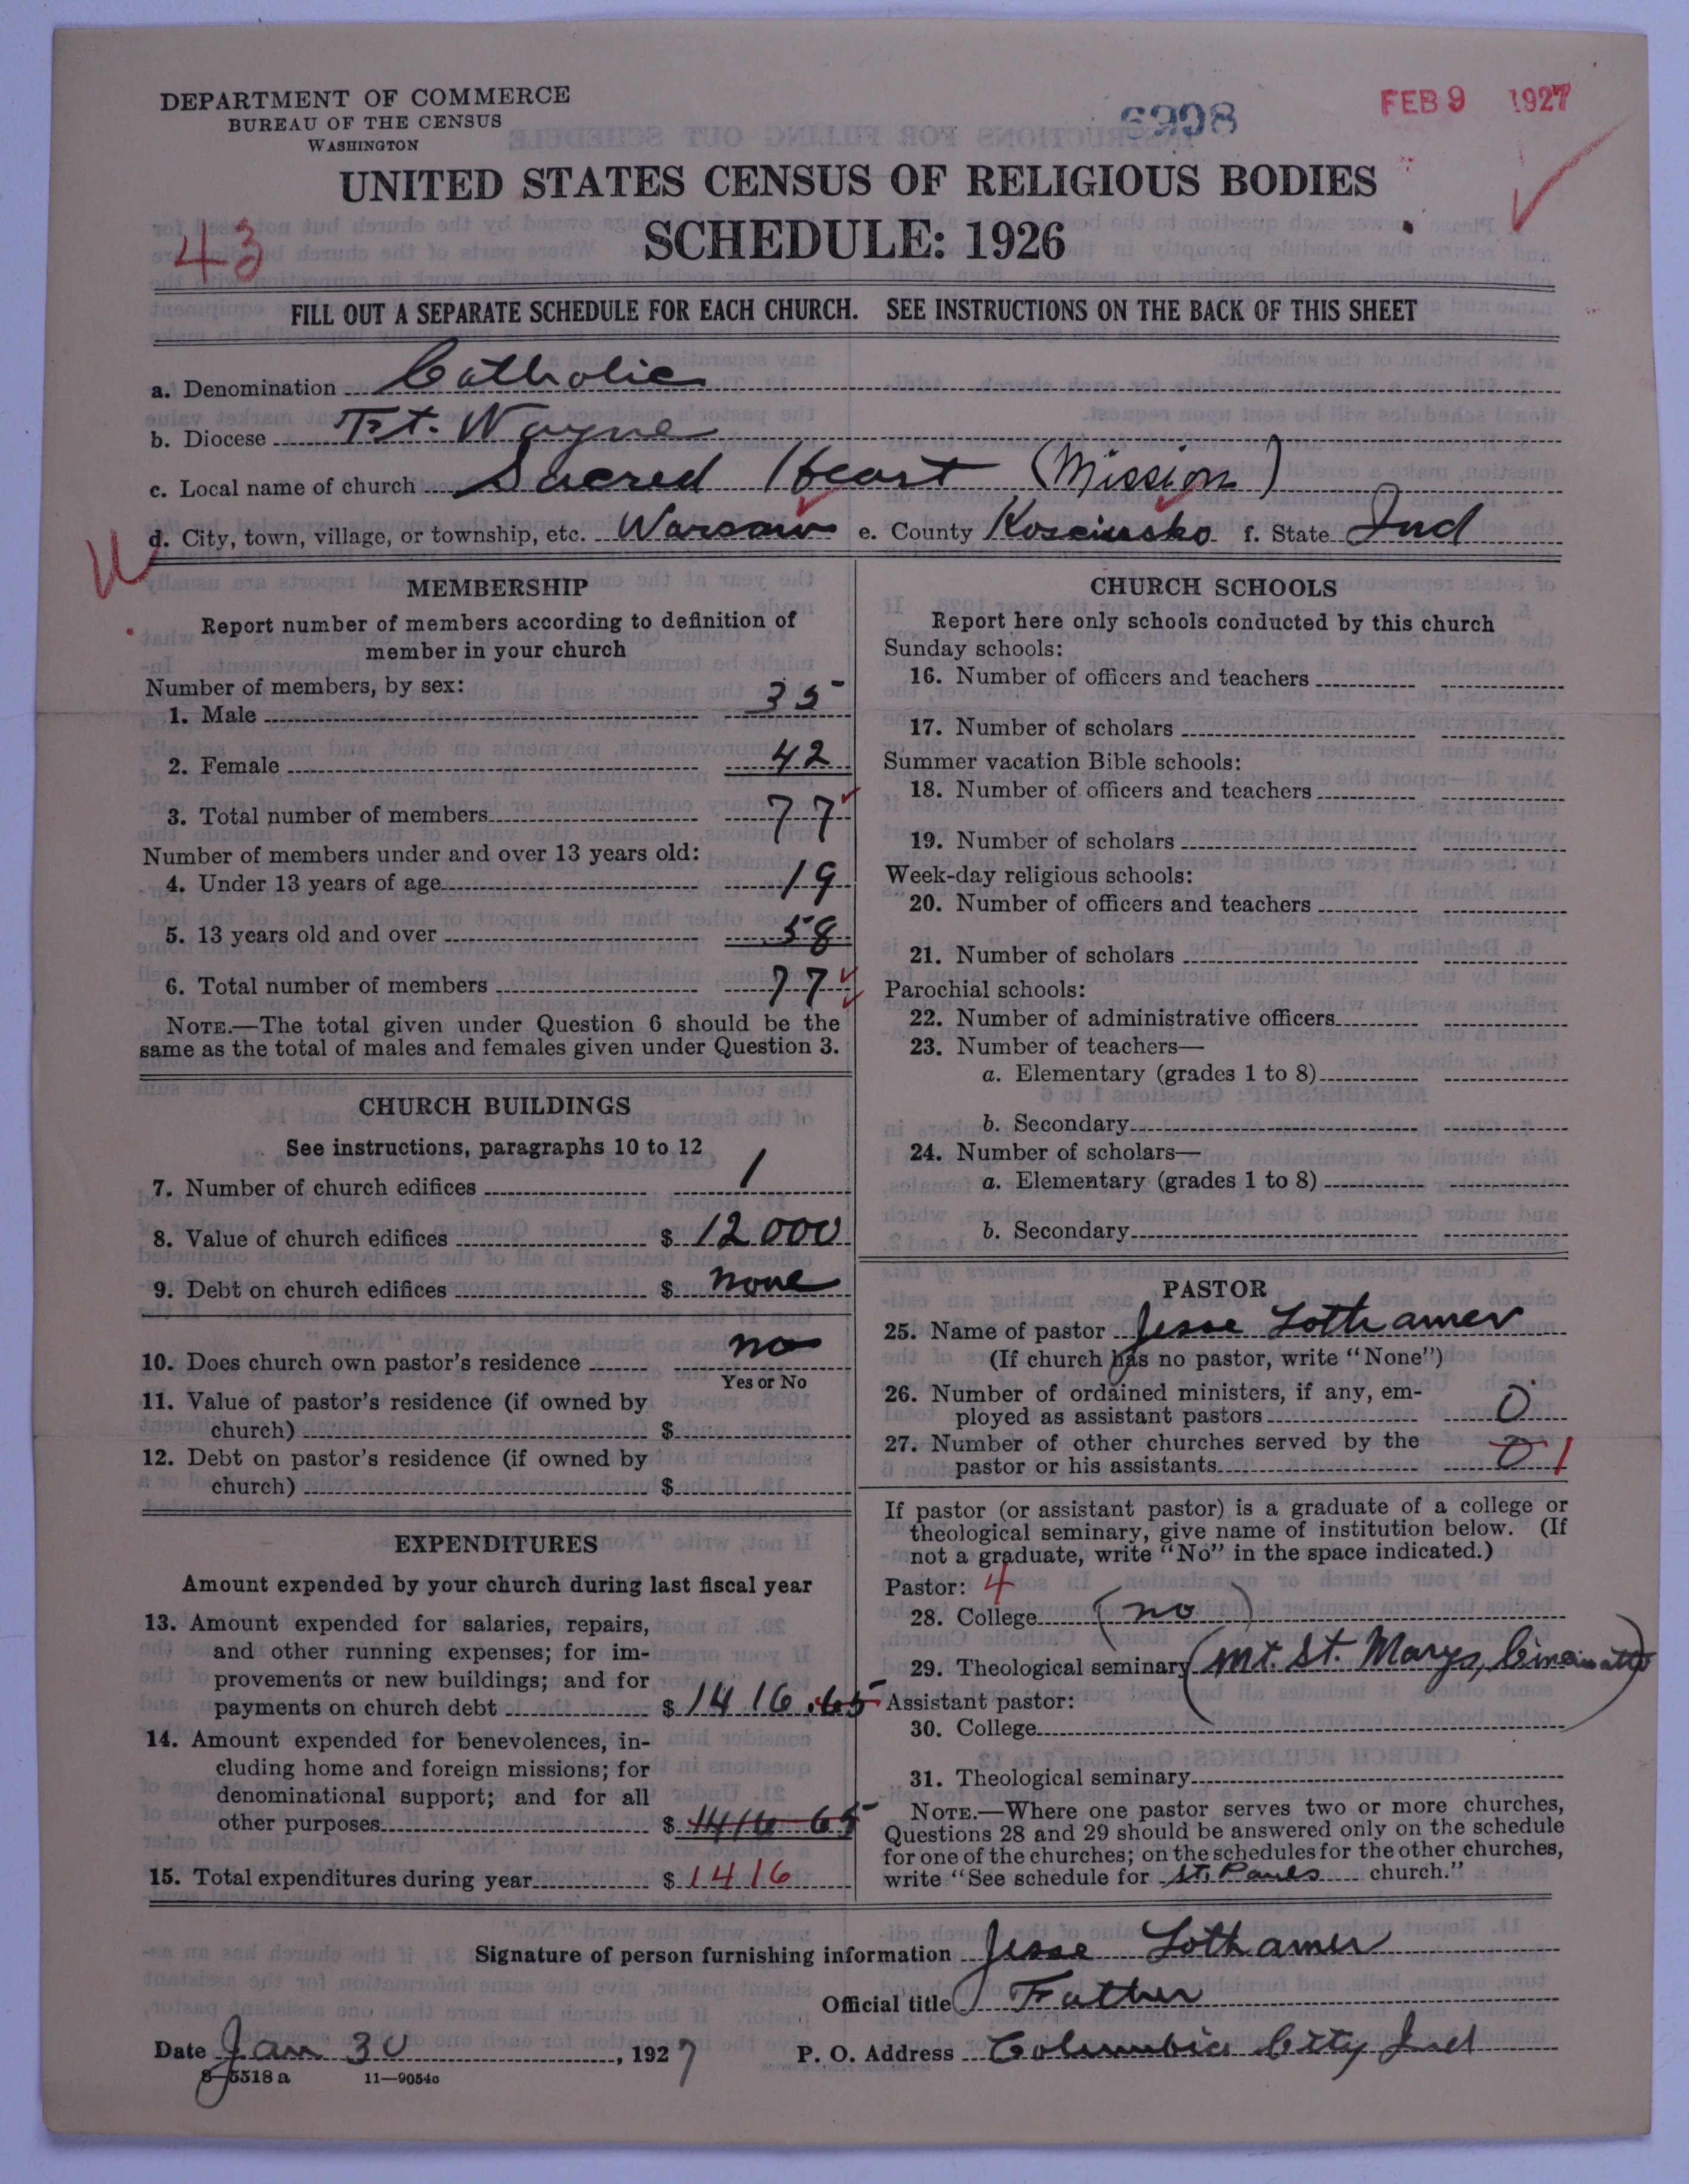 DEPARTMENT OF COMMERCE
BUREAU OF THE CENSUS
WASHINGTON
6998
FEB 9 1927
UNITED STATES CENSUS OF RELIGIOUS BODIES
SCHEDULE: 1926
43
FILL OUT A SEPARATE SCHEDULE FOR EACH CHURCH. SEE INSTRUCTIONS ON THE BACK OF THIS SHEET
a. Denomination Catholic
b. Diocese Ft. Wayne
c. Local name of church Sacred Heart (Mission)
d. City, town, village, or township, etc. Warsaw e. County Kosciusko f. State Ind
MEMBERSHIP
Report number of members according to definition of
member in your church
Number of members, by sex:
1. Male 35
2. Female 42
3. Total number of members 77
Number of members under and over 13 years old:
4. Under 13 years of age 19
5. 13 years old and over 58
6. Total number of members 77
NOTE.—The total given under Question 6 should be the
same as the total of males and females given under Question 3.
CHURCH BUILDINGS
See instructions, paragraphs 10 to 12
7. Number of church edifices 1
8. Value of church edifices $ 12000
9. Debt on church edifices $ none
10. Does church own pastor's residence no
Yes or No
11. Value of pastor's residence (if owned by
church) $
12. Debt on pastor's residence (if owned by
church) $
EXPENDITURES
Amount expended by your church during last fiscal year
13. Amount expended for salaries, repairs,
and other running expenses; for im-
provements or new buildings; and for
payments on church debt $ 1416.65
14. Amount expended for benevolences, in-
cluding home and foreign missions; for
denominational support; and for all
other purposes $ 1416 65
15. Total expenditures during year $ 1416
CHURCH SCHOOLS
Report here only schools conducted by this church
Sunday schools:
16. Number of officers and teachers
17. Number of scholars
Summer vacation Bible schools:
18. Number of officers and teachers
19. Number of scholars
Week-day religious schools:
20. Number of officers and teachers
21. Number of scholars
Parochial schools:
22. Number of administrative officers
23. Number of teachers—
a. Elementary (grades 1 to 8)
b. Secondary
24. Number of scholars—
a. Elementary (grades 1 to 8)
b. Secondary
PASTOR
25. Name of pastor Jesse Lothamer
(If church has no pastor, write "None")
26. Number of ordained ministers, if any, em-
ployed as assistant pastors 0
27. Number of other churches served by the
pastor or his assistants 0 1
If pastor (or assistant pastor) is a graduate of a college or
theological seminary, give name of institution below. (If
not a graduate, write "No" in the space indicated.)
Pastor: 4
28. College (no)
29. Theological seminary (Mt. St. Marys, Cincinatti)
Assistant pastor:
30. College
31. Theological seminary
NOTE.—Where one pastor serves two or more churches,
Questions 28 and 29 should be answered only on the schedule
for one of the churches; on the schedules for the other churches,
write "See schedule for St. Pauls church."
Signature of person furnishing information Jesse Lothamer
Official title Father
Date Jan 30, 1927 P. O. Address Columbia City Ind
8-5518a 11—9054c